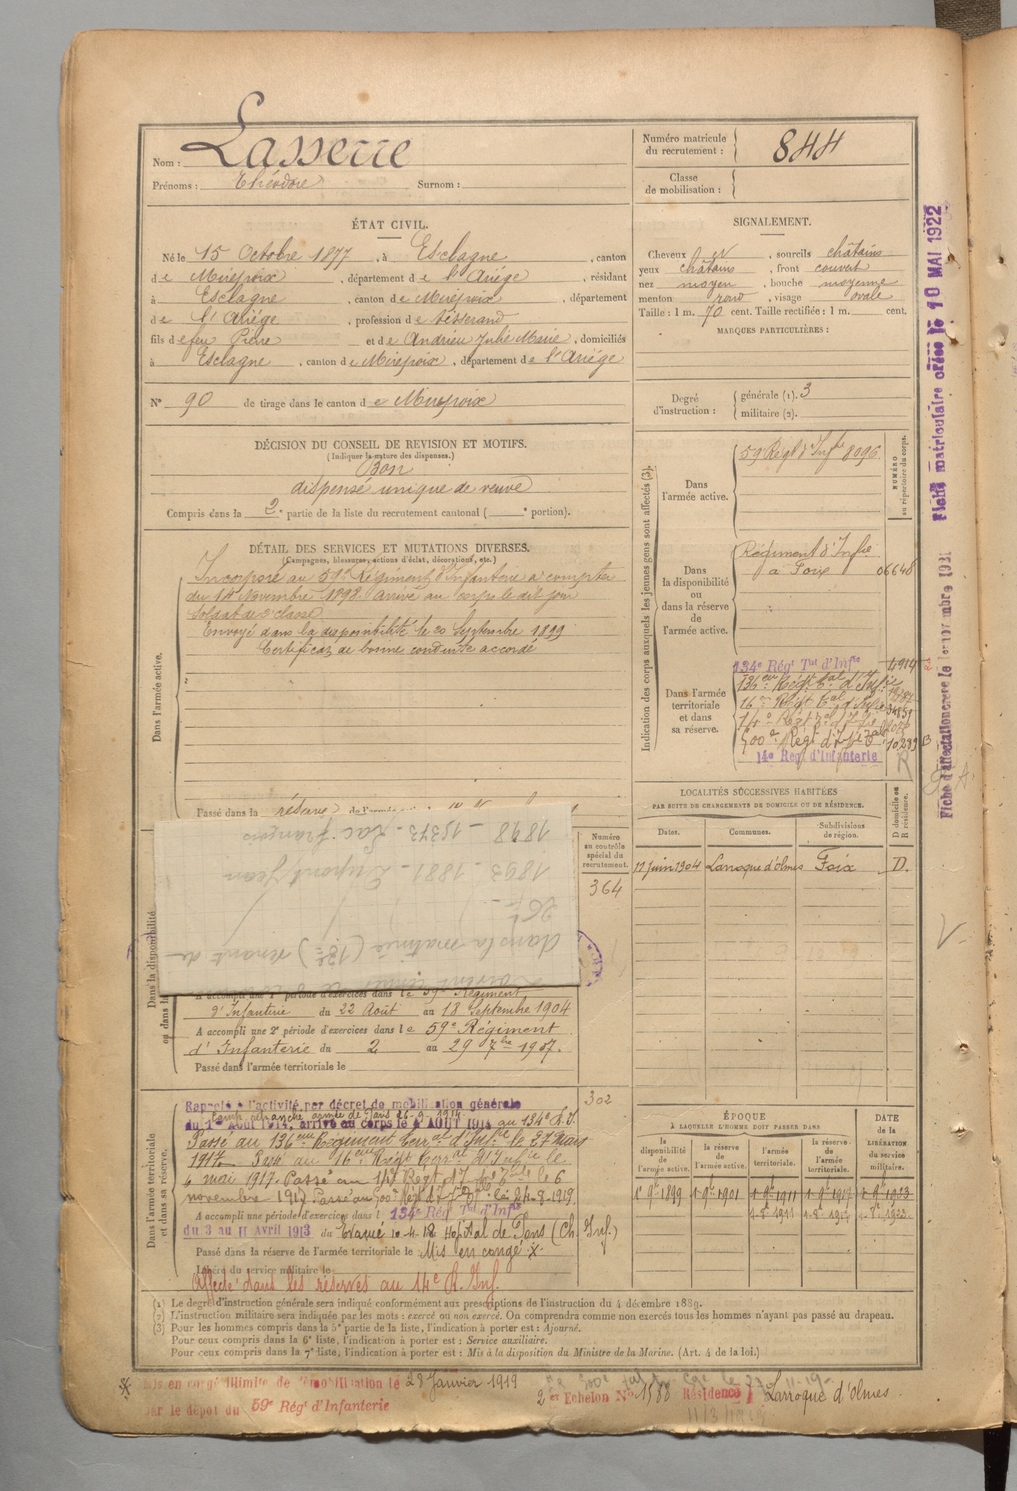 Nom : Lasserre
Prénoms : Théodore Surnom :
Numéro matricule du recrutement : 844
Classe de mobilisation :
ÉTAT CIVIL.
Né le 15 Octobre 1877, à Esclagne, canton
de Mirepoix, département de l'Ariége, résidant
à Esclagne, canton de Mirepoix, département
de l'Ariége, profession de tisserand
fils de feu Pierre et de Andrieu Julie Marie, domiciliés
à Esclagne, canton de Mirepoix, département de l'Ariége
N° 90 de tirage dans le canton de Mirepoix
SIGNALEMENT.
Cheveux et, sourcils châtains
yeux châtains, front couvert
nez moyen, bouche moyenne
menton rond, visage ovale
Taille : 1 m. 70 cent. Taille rectifiée : 1 m. cent.
MARQUES PARTICULIÈRES :
Degré d'instruction : générale (1). 3
militaire (2).
DÉCISION DU CONSEIL DE REVISION ET MOTIFS.
(Indiquer la nature des dispenses.)
Bon
dispensé unique de veuve
Compris dans la 2e partie de la liste du recrutement cantonal ( e portion).
DÉTAIL DES SERVICES ET MUTATIONS DIVERSES.
(Campagnes, blessures, actions d'éclat, décorations, etc.)
Dans l'armée active.
Incorporé au 59e Régiment d'Infanterie à compter
du 14 Novembre 1898. Arrivé au corps le dit jour
soldat de 2e classe
Envoyé dans la disponibilité le 20 Septembre 1899
Certificat de bonne conduite accordé
Passé dans la réserve de l'armée
Indication des corps auxquels les jeunes gens sont affectés (3).
Dans l'armée active.
59 Régt d'Infie 8096
NUMÉRO au répertoire du corps.
Dans la disponibilité ou dans la réserve de l'armée active.
Régiment d'Infie
à Foix 06648
Dans l'armée territoriale et dans sa réserve.
134e Régt Tal d'Infie 4914
136e Régt Tal d'Infie
16e Régt Tal d'Infie
14e Rég d'Infanterie
LOCALITÉS SUCCESSIVES HABITÉES
PAR SUITE DE CHANGEMENTS DE DOMICILE OU DE RÉSIDENCE.
Dates. Communes. Subdivisions de région. D domicile ou R résidence.
17 juin 1904 Larroque d'olmes Foix D.
Numéro au contrôle spécial du recrutement.
364
1898 – 15373 – Lac François
1893 – 1881 – Dupont Jean
dans la matrice venant de
Dans la disponibilité
A accompli une 1e période d'exercices dans le 59e Régiment
d'Infanterie du 22 Août au 18 Septembre 1904
A accompli une 2e période d'exercices dans le 59e Régiment
d'Infanterie du 2 au 29 7bre 1907.
Passé dans l'armée territoriale le
302
Dans l'armée territoriale et dans sa réserve.
Rappelé à l'activité par décret de mobilisation générale
Camp retranché armée de Paris 26-9-1914
du 1er Août 1914, arrivé au corps le 4 AOUT 1914 au 134e R.I.
Passé au 136eme Régiment Terral d'Infie le 27 Mars
1917. Passé au 16eme Régt Terral d'Infie le
4 mai 1917. Passé au
novembre 1917
A accompli une période d'exercices dans l 134e Régt Tal d'Infie
du 3 au 11 Avril 1913 Evacué 10-4-18 Hopital de Sens
Passé dans la réserve de l'armée territoriale le Mis en congé
Libéré du service militaire le
Affecté dans les réserves au 14e R. Inf.
ÉPOQUE
À LAQUELLE L'HOMME DOIT PASSER DANS
la disponibilité de l'armée active. la réserve de l'armée active. l'armée territoriale. la réserve de l'armée territoriale.
DATE de la LIBÉRATION du service militaire.
1 9bre 1899 1 9bre 1901 1 9bre 1911 1 9bre 1917 1 9bre 1923
(1) Le degré d'instruction générale sera indiqué conformément aux prescriptions de l'instruction du 4 décembre 1889.
(2) L'instruction militaire sera indiquée par les mots : exercé ou non exercé. On comprendra comme non exercés tous les hommes n'ayant pas passé au drapeau.
(3) Pour les hommes compris dans la 5e partie de la liste, l'indication à porter est : Ajourné.
Pour ceux compris dans la 6e liste, l'indication à porter est : Service auxiliaire.
Pour ceux compris dans la 7e liste, l'indication à porter est : Mis à la disposition du Ministre de la Marine. (Art. 4 de la loi.)
Mis en congé illimité de démobilisation le 28 Janvier 1919
2e Echelon N° 1588 Résidence Larroque d'Olmes
par le dépôt du 59e Rég d'Infanterie
Fiche matriculaire créée le 10 MAI 1922